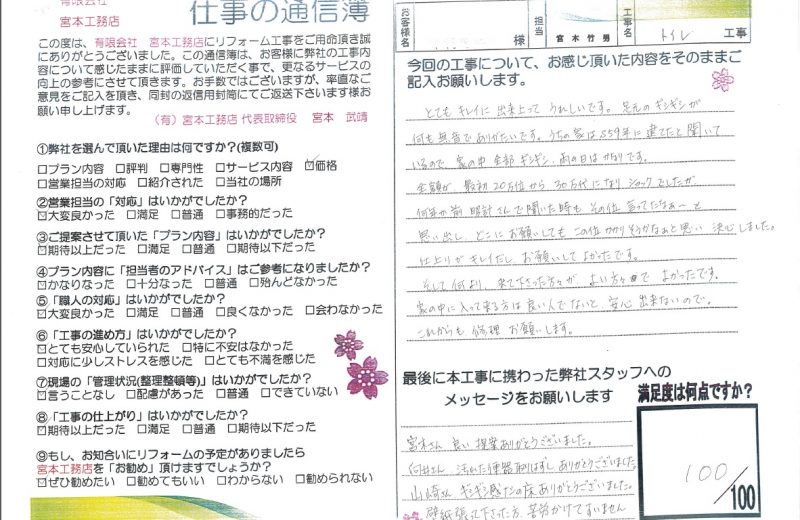 有限会社
宮本工務店
仕事の通信簿
この度は、有限会社 宮本工務店にリフォーム工事をご用命頂き誠
にありがとうございました。この通信簿は、お客様に弊社の工事内
容について感じたままに評価していただく事で、更なるサービスの
向上の参考にさせて頂きます。お手数ではございますが、率直なご
意見をご記入を頂き、同封の返信用封筒にてご返送下さいます様お
願い申し上げます。
(有)宮本工務店 代表取締役 宮本 武晴
①弊社を選んで頂いた理由は何ですか?(複数可)
□プラン内容 □評判 □専門性 □サービス内容 ☑価格
□営業担当の対応 □紹介された □当社の場所
②営業担当の「対応」はいかがでしたか?
☑大変良かった □満足 □普通 □事務的だった
③ご提案させて頂いた「プラン内容」はいかがでしたか?
☑期待以上だった □満足 □普通 □期待以下だった
④プラン内容に「担当者のアドバイス」はご参考になりましたか?
☑かなりなった □十分なった □普通 □殆んどなかった
⑤「職人の対応」はいかがでしたか?
☑大変良かった □満足 □普通 □良くなかった □会わなかった
⑥「工事の進め方」はいかがでしたか?
☑とても安心していられた □特に不安はなかった
□対応に少しストレスを感じた □とても不満を感じた
⑦現場の「管理状況(整理整頓等)」はいかがでしたか?
☑言うことなし □配慮があった □普通 □できていない
⑧「工事の仕上がり」はいかがでしたか?
☑期待以上だった □満足 □普通 □期待以下だった
⑨もし、お知合いにリフォームの予定がありましたら
宮本工務店を「お勧め」頂けますでしょうか?
☑ぜひ勧めたい □勧めてもいい □わからない □勧められない
お客様名 様 担当 宮本竹男 工事名 トイレ 工事
今回の工事について、お感じ頂いた内容をそのままご
記入お願いします。
とても キレイに 出来上って うれしいです。足元のギシギシが
何も無音でありがたいです。うちの家はS59年に建てたと聞いて
いるので、家の中全部ギシギシ、雨の日はかなりです。
金額が、最初20万位から30万代になりショックでしたが
何年か前 時計さんで聞いた時も その位言ってたなぁ~と
思い出し、どこにお願いしてもこの位かかりそうかなぁと思い 決心しました。
仕上りがキレイだし、お願いしてよかったです。
そして何より、来て下さった方々が よい方々で よかったです。
家の中に入って来る方は良い人でないと 安心出来ないので。
これからも 修理 お願いします。
最後に本工事に携わった弊社スタッフへの
メッセージをお願いします
宮本さん 良い提案ありがとうございました。
汚れた便器取りはずし ありがとうございました
山崎さん ギシギシ感だの床ありがとうございました。
壁紙張って下さった方、苦労かけてすいません
満足度は何点ですか?
100
/100